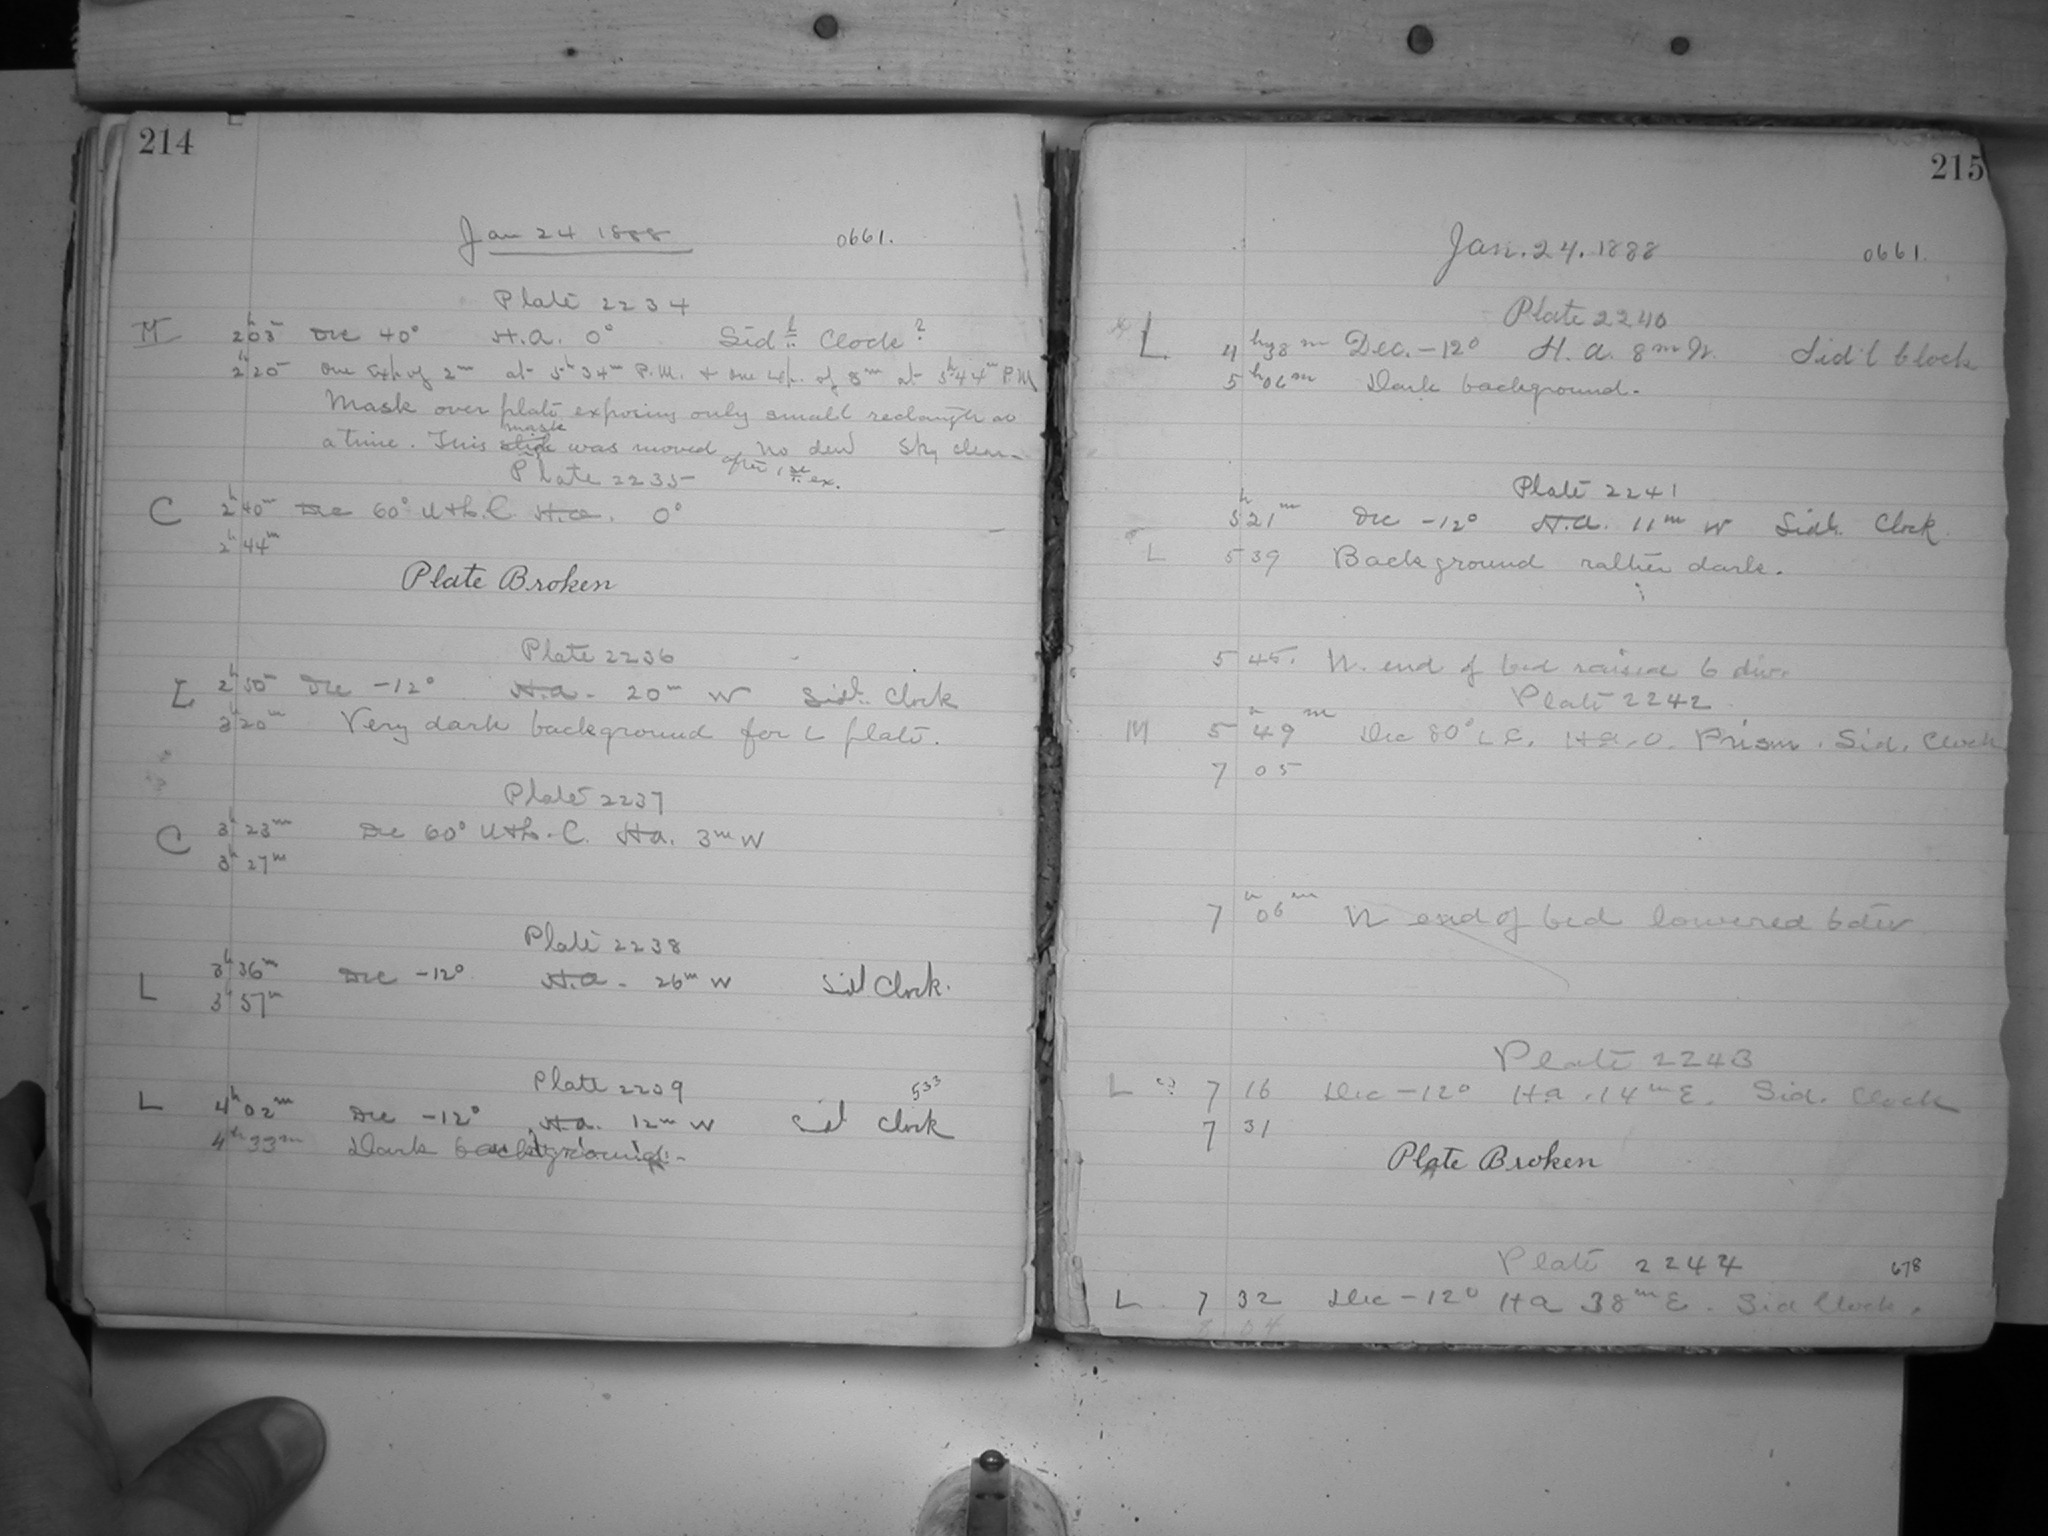 214
Jan 24 1888 0661.
Plate 2234
M 2h 03m Dec 40° H.A. 0° Sidl. Clock?
2h 20m One Exp. of 2m at 5h 34m P.M. + one exp. of 8m at 5h 44m P.M
Mask over plate exposing only small rectangle at
a time. This mask was moved after 1st ex. No dew Sky clear
Plate 2235
C 2h 40m Dec 60° H.A. 0°
2h 44m
Plate Broken
Plate 2236
L 2h 50m Dec -12° H.A. 20m W Sidl. Clock
3h 20m Very dark background for L plate.
Plate 2237
C 3h 23m Dec 60° H.A. 3m W
3h 27m
Plate 2238
L 3h 36m Dec -12° H.A. 26m W Sidl Clock.
3h 57m
Plate 2239 533
L 4h 02m Dec -12° H.A. 12m W Sidl Clock
4h 33m Dark background.
215
Jan. 24. 1888 0661.
Plate 2240
L 4h 38m Dec. -12° H.A. 8m W. Sid'l Clock
5h 06m Dark background.
Plate 2241
5h 21m Dec -12° H.A. 11m W Sidl. Clock
L 5 39 Background rather dark.
5 45. N. end of bed raised 6 div.
Plate 2242
M 5h 49m Dec 80° L C. H.a. 0. Prism. Sid. Clock
7 05
7h 06m N end of bed lowered 6 div
Plate 2243
L 7 16 Dec -12° Ha. 14m E. Sid. Clock
7 31
Plate Broken
Plate 2244 678
L. 7 32 Dec -12° Ha 38m E. Sid Clock.